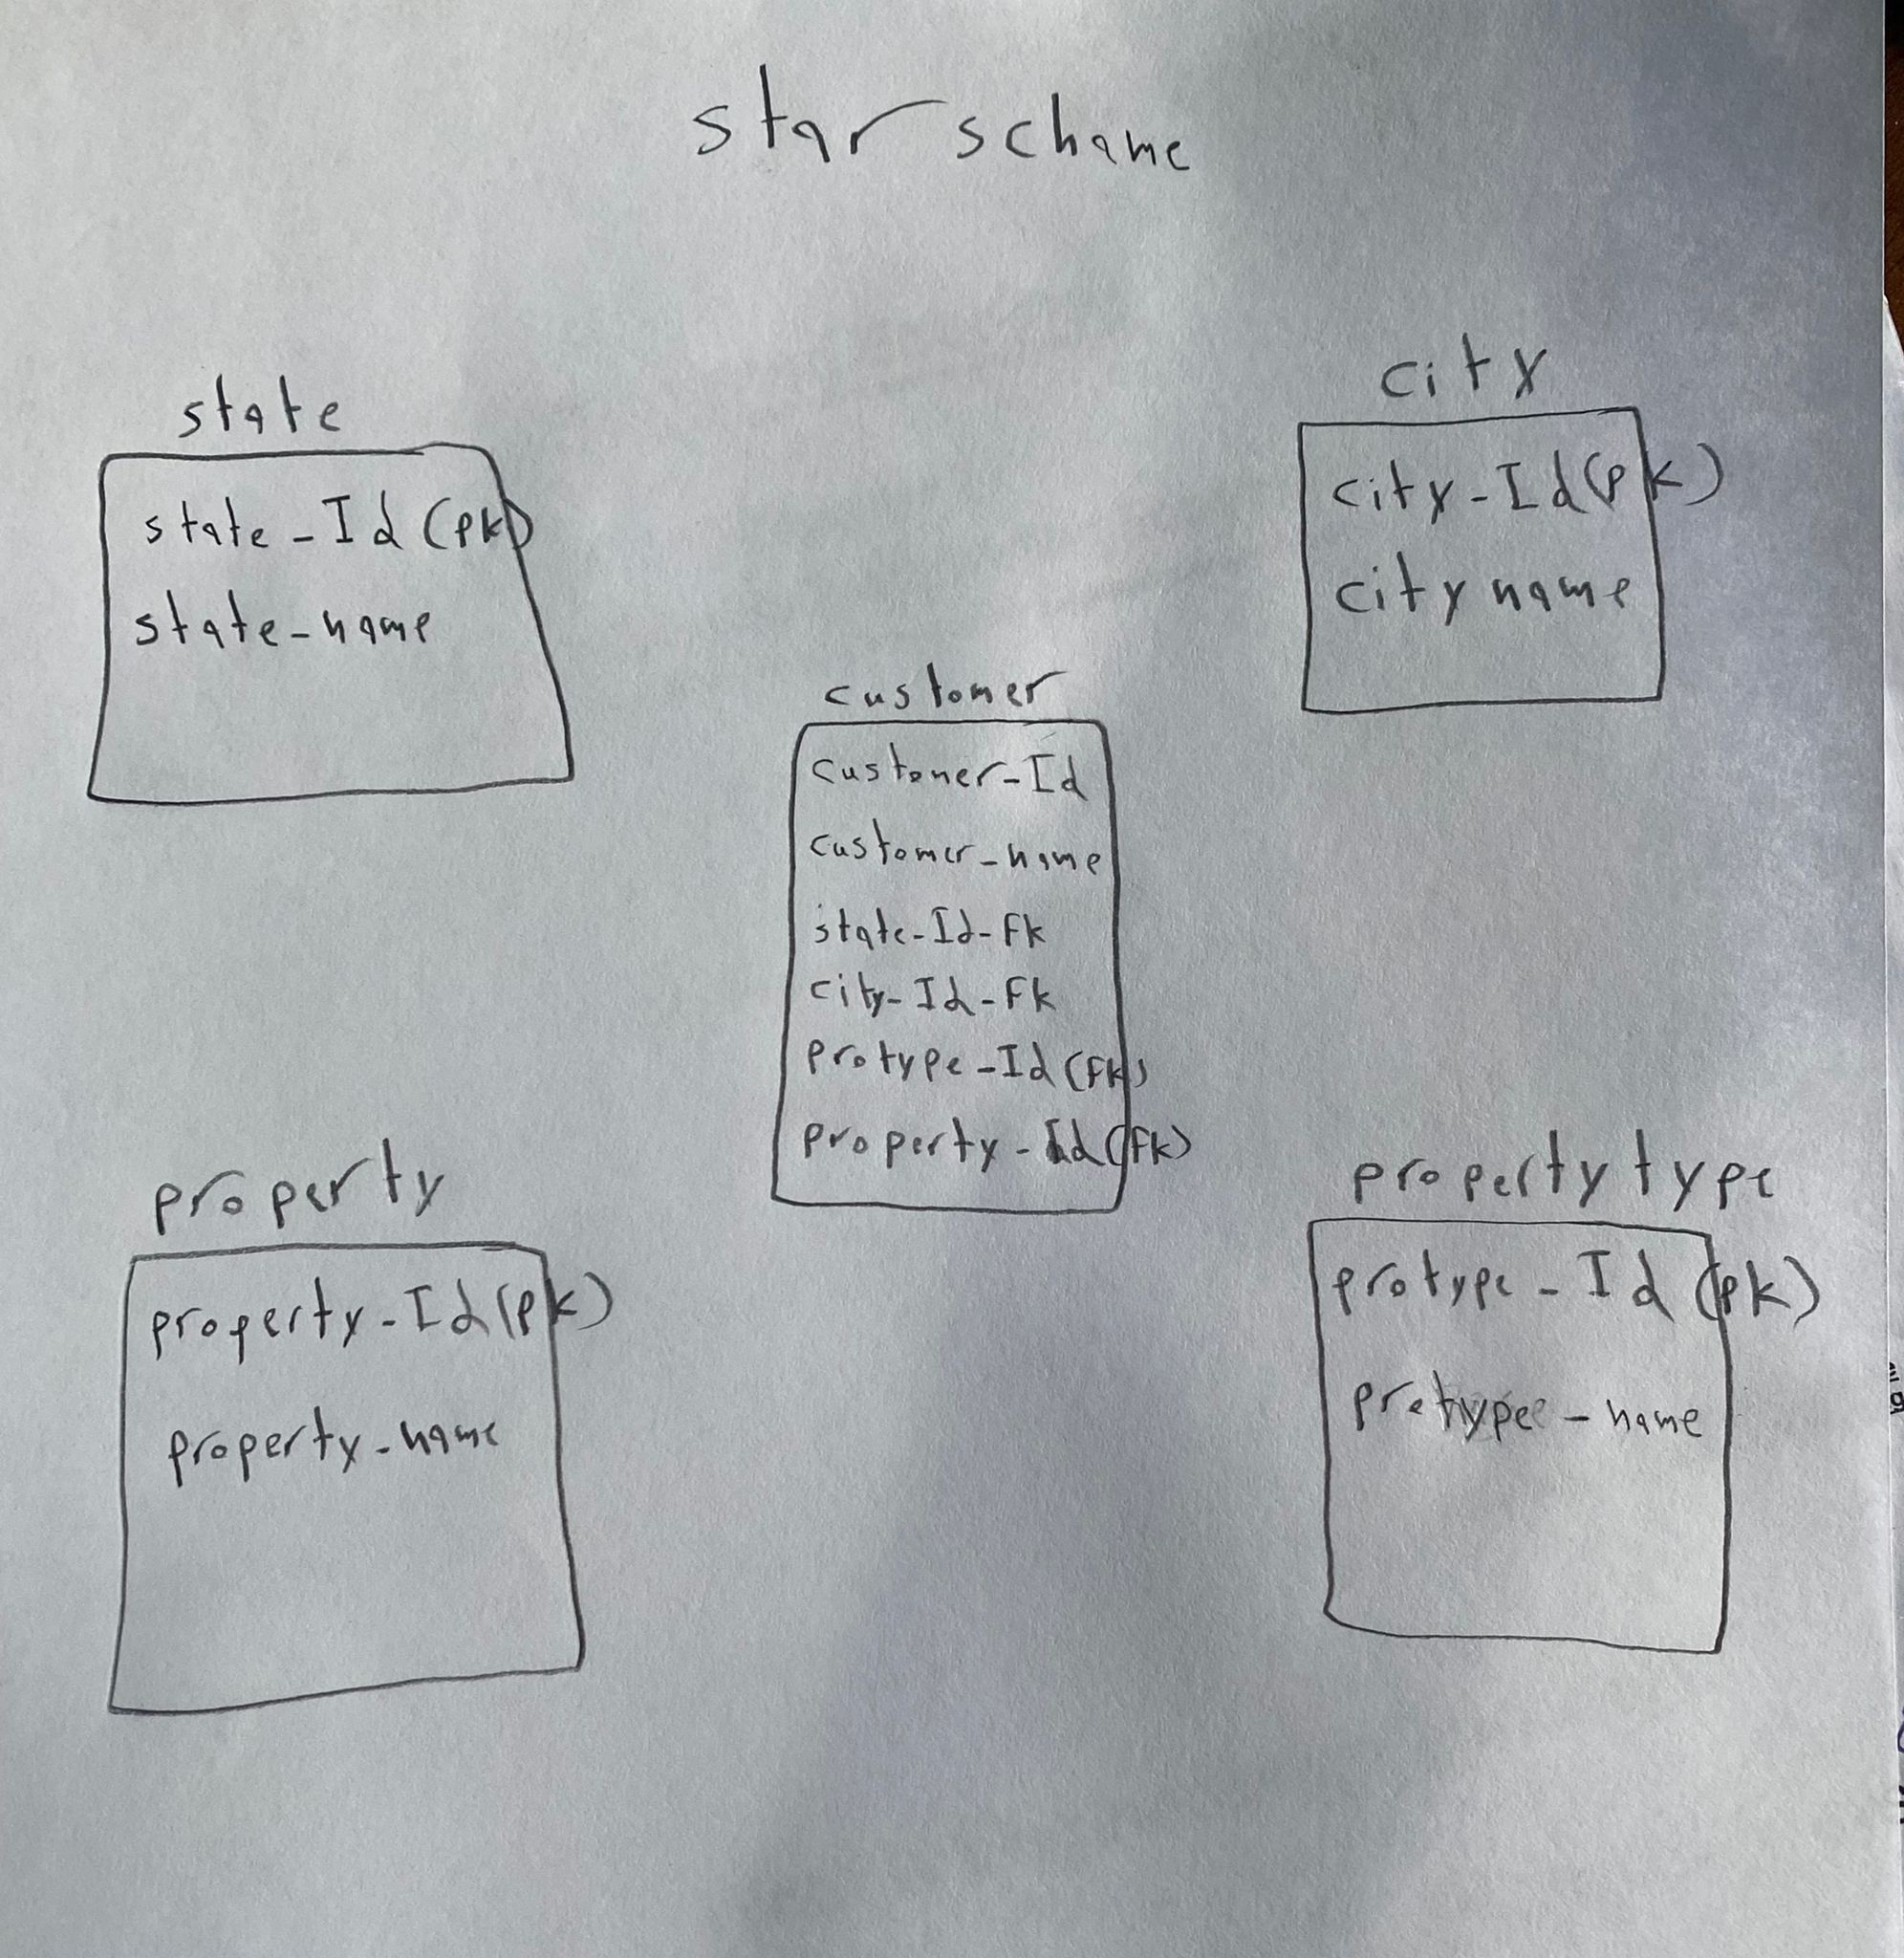 star schame
state
state-Id (pk)
state-name
city
city-Id (pk)
city name
customer
customer-Id
customer-name
state-Id-fk
city-Id-fk
protype-Id (fk)
property-Id (fk)
property
property-Id (pk)
property-name
property type
protype-Id (pk)
protype-name